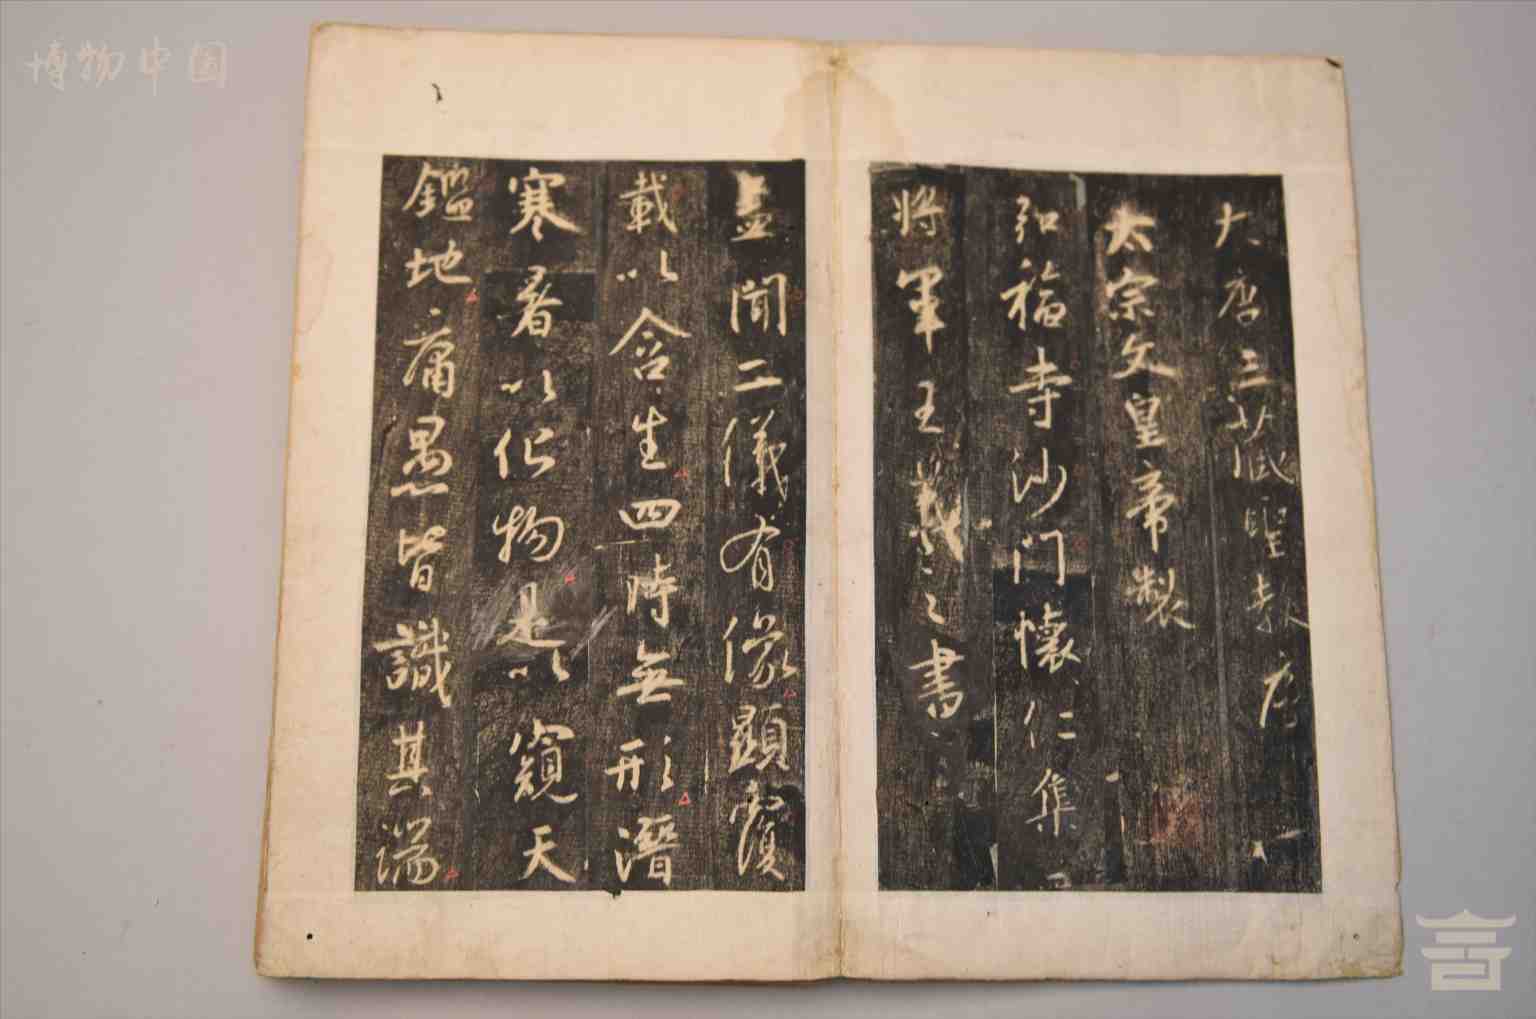 博物中国
大唐三藏聖教序
太宗文皇帝製
弘福寺沙門懷仁集
將軍王羲之書
盖聞二儀有像顯覆
載以含生四時無形潛
寒暑以化物是以窺天
鑑地庸愚皆識其端